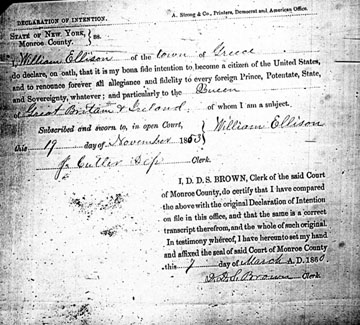 DECLARATION OF INTENTION.
A. Strong & Co., Printers, Democrat and American Office.
STATE OF NEW YORK, } ss.
Monroe County.
I William Ellison of the town of Greece
do declare, on oath, that it is my bona fide intention to become a citizen of the United States,
and to renounce forever all allegiance and fidelity to every foreign Prince, Potentate, State,
and Sovereignty, whatever; and particularly to the Queen
of Great Britain & Ireland, of whom I am a subject.
Subscribed and sworn to, in open Court, } William Ellison
this 19 day of November 1853
Cutler Clerk.
I, D. D. S. BROWN, Clerk of the said Court
of Monroe County, do certify that I have compared
the above with the original Declaration of Intention
on file in this office, and that the same is a correct
transcript therefrom, and the whole of such original.
In testimony whereof, I have hereunto set my hand
and affixed the seal of said Court of Monroe County
this 7 day of March A. D. 1860
D. D. S. Brown Clerk